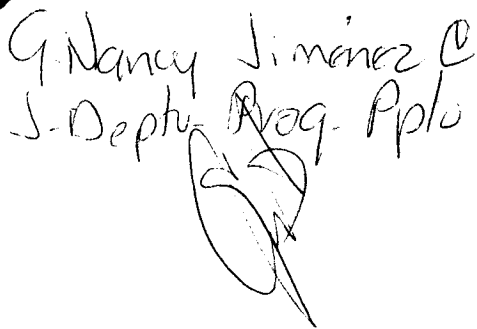 G. Nancy Jiménez C
J. Depto. Prog. Ppto